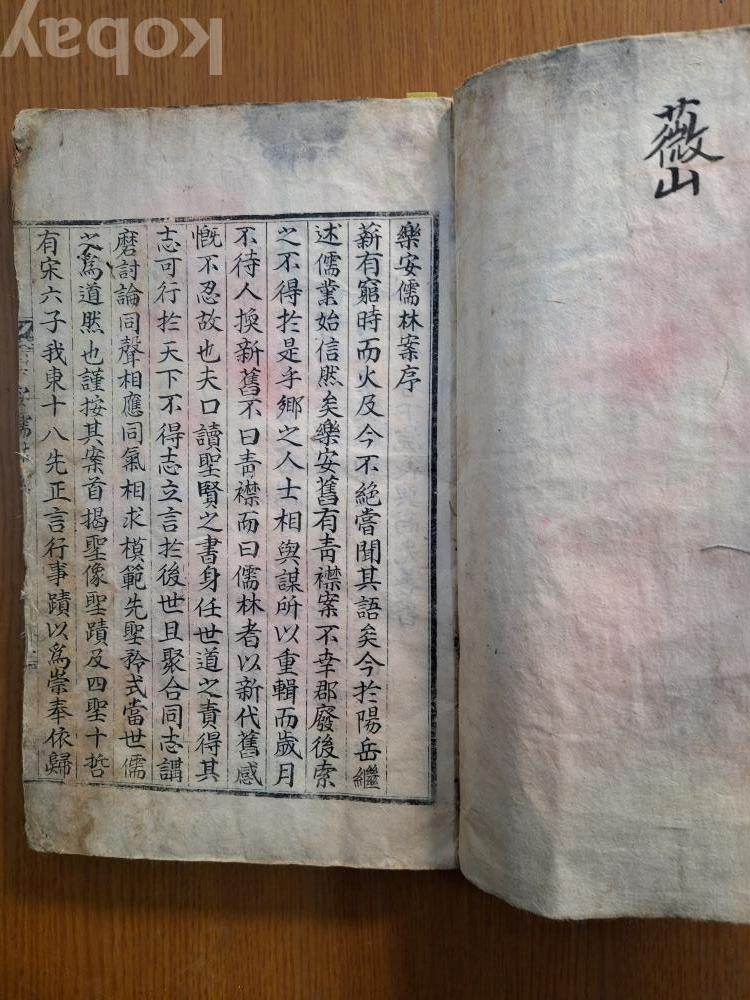 kobay
薇山
樂安儒林案序
薪有窮時而火及今不絶嘗聞其語矣今扵陽岳繼
述儒業始信然矣樂安舊有靑襟案不幸郡廢後索
之不得扵是乎鄉之人士相與謀所以重輯而歲月
不待人換新舊不曰靑襟而曰儒林者以新代舊感
慨不忍故也夫口讀聖賢之書身任世道之責得其
志可行扵天下不得志立言扵後世且聚合同志講
磨討論同聲相應同氣相求模範先聖矜式當世儒
之爲道然也謹按其案首揭聖像聖蹟及四聖十哲
有宋六子我東十八先正言行事蹟以爲崇奉依歸